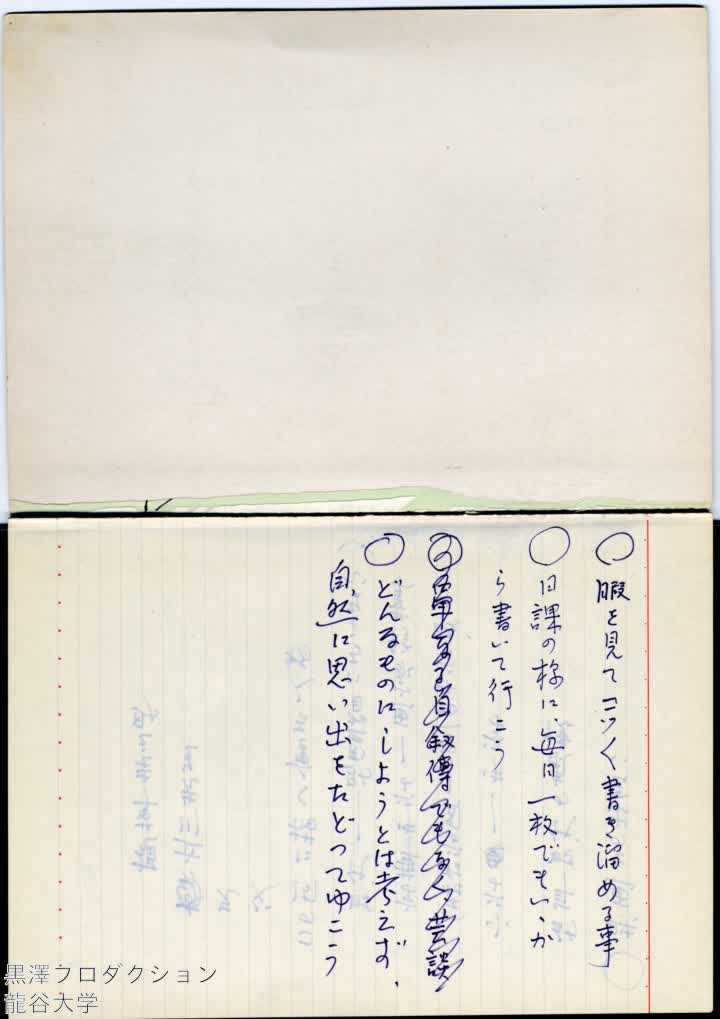 ○ 暇を見てコツ〱書き溜める事
○ 日課の様に、毎日一枚でもいゝか
ら書いて行こう
自叙傳でもなく芸談
○ どんなものにしようとは考えず、
自然に思い出をたどってゆこう
黒澤プロダクション
龍谷大学